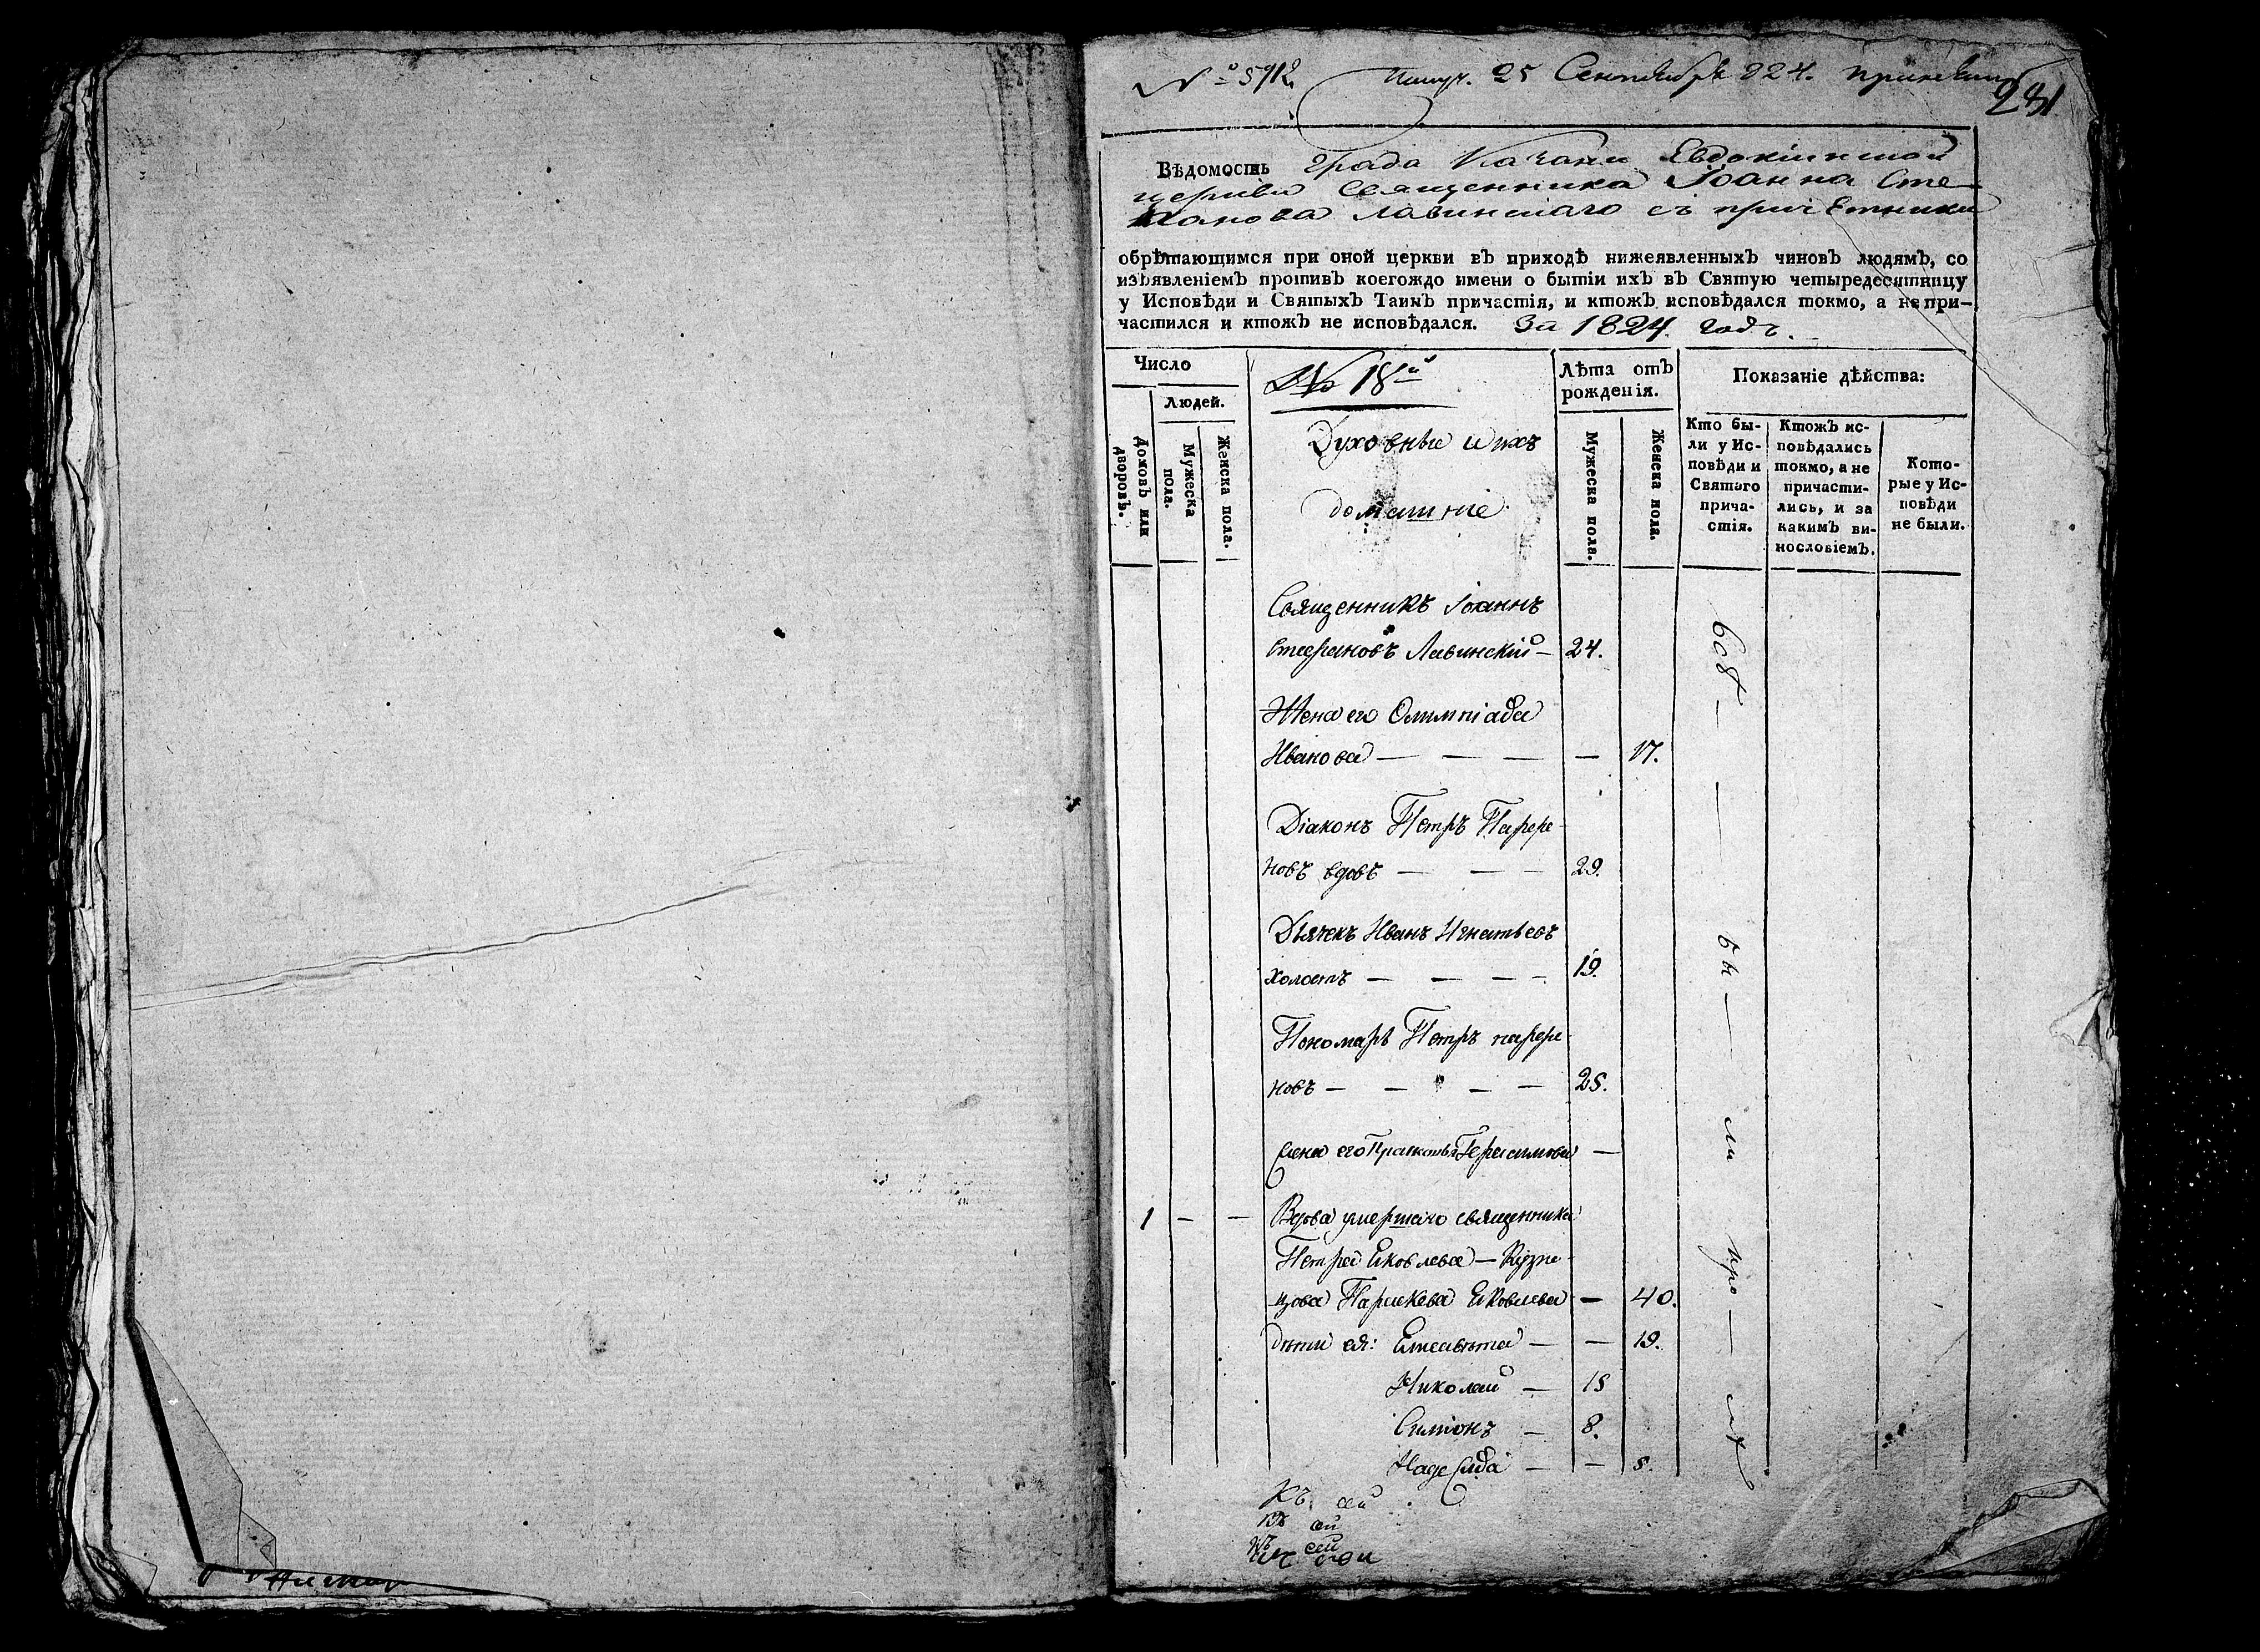 № 5912 Получ. 25 Сентября 824.
231
Вѣдомость града Казани Евдокіинской
церкви священника Іоанна Сте
фанова Лавинскаго съ причетники
обрѣтающимся при оной церкви въ приходѣ нижеявленныхъ чиновъ людямъ, со
изъявленіемъ противъ коегождо имени о бытіи ихъ въ Святую четыредесятницу
у Исповѣди и Святыхъ Таинъ причастія, и ктожъ исповѣдался токмо, а не при-
частился и ктожъ не исповѣдался. За 1824 годъ.
Число
Людей.
Домовъ или дворовъ.
Мужеска пола.
Женска пола.
№ 18й
Духовные и ихъ
домашніе
Лѣта отъ
рожденія.
Мужеска пола.
Женска пола.
Показаніе дѣйства:
Кто бы-
ли у Ис-
повѣди и
Святаго
прича-
стія.
Ктожъ ис-
повѣдались
токмо, а не
причасти-
лись, и за
какимъ ви-
нословіемъ.
Кото-
рые у Ис-
повѣди
не были.
Священникъ Іоаннъ
Стефановъ Лавинскій — 24.
Жена его Олимпіада
Иванова — — — — 17.
Діаконъ Петръ Парфе-
новъ вдовъ — — — 29.
Дьячекъ Иванъ Игнатьевъ
холостъ — — — — 19.
Пономарь Петръ парфе-
новъ — — — — 25.
Жена его Прасковья Герасимова —
1 — — Вдова умершаго священника
Петра Яковлева — Кузне-
цова Параскева Яковлева — 40.
дѣти ея: Елисавета — — 19.
Николай — 15
Симіонъ — 8.
Надежда — — 5.
всѣ — — бы — ли
къ сей
къ сей
къ сей
къ сей